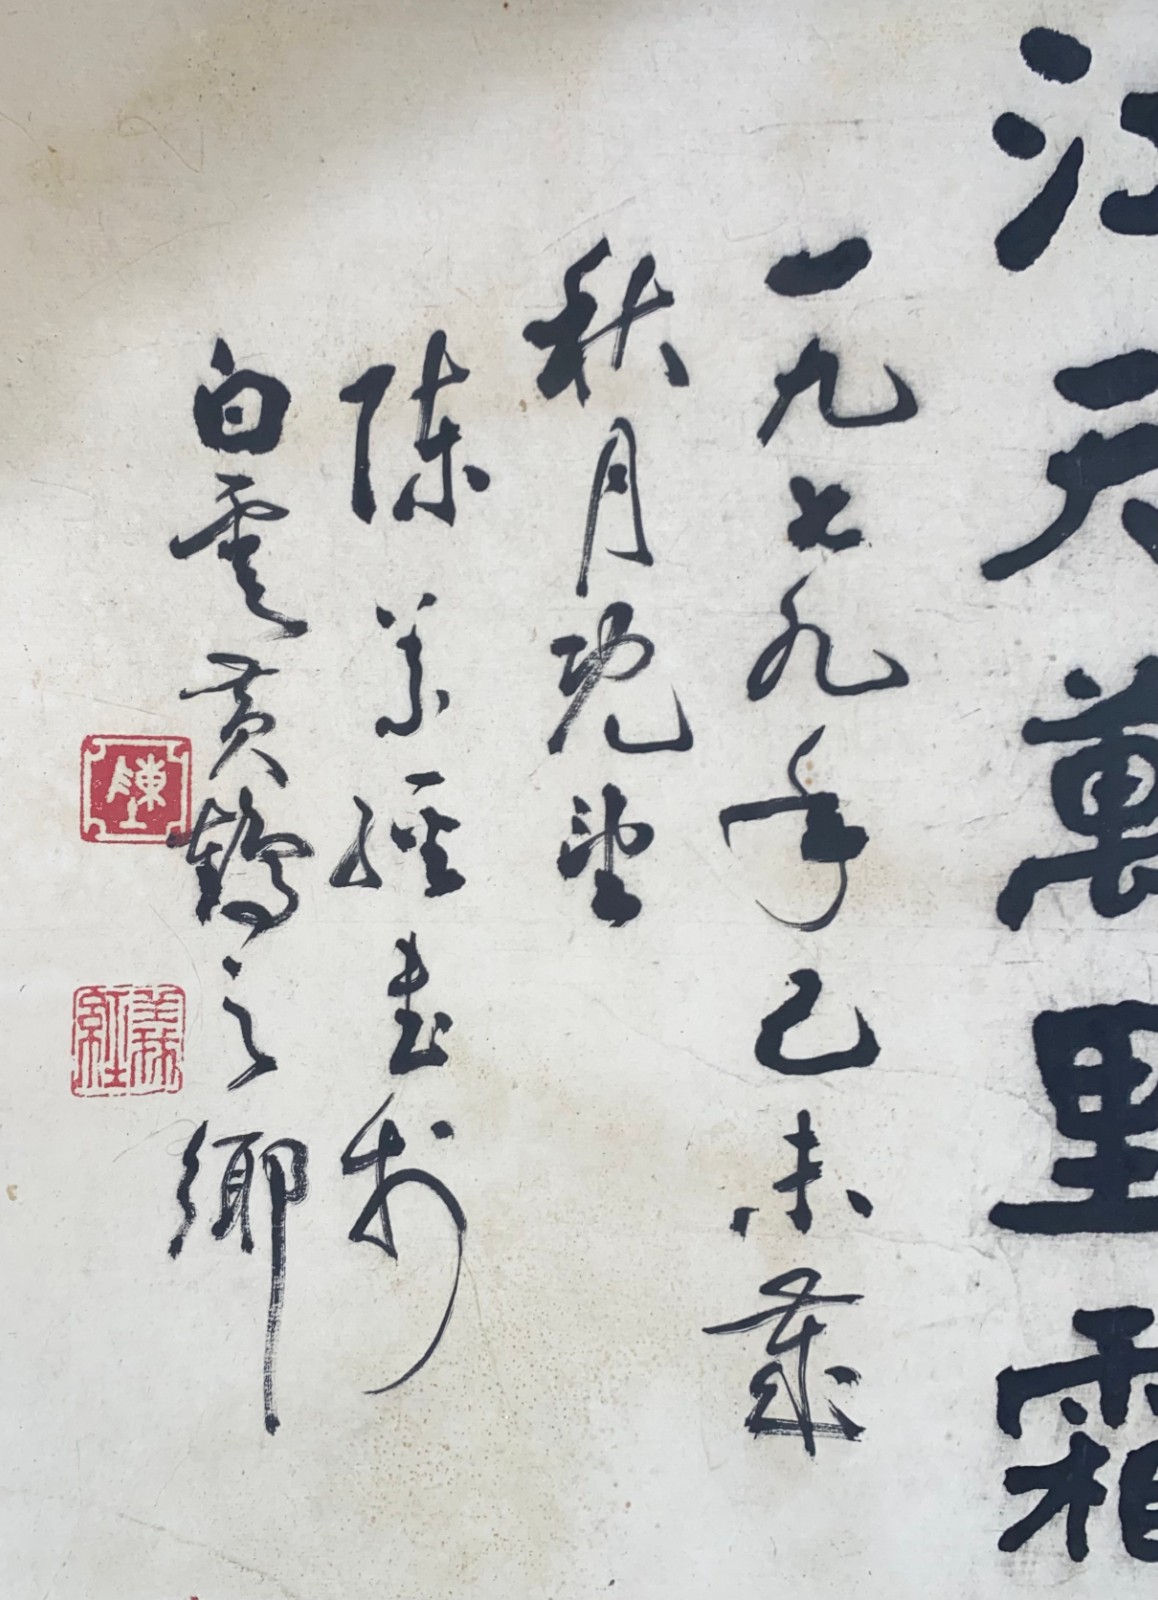 江天萬里霜
一九七九年己未歲
秋月既望
陳義經書於
白雲黃鶴之鄉
陳